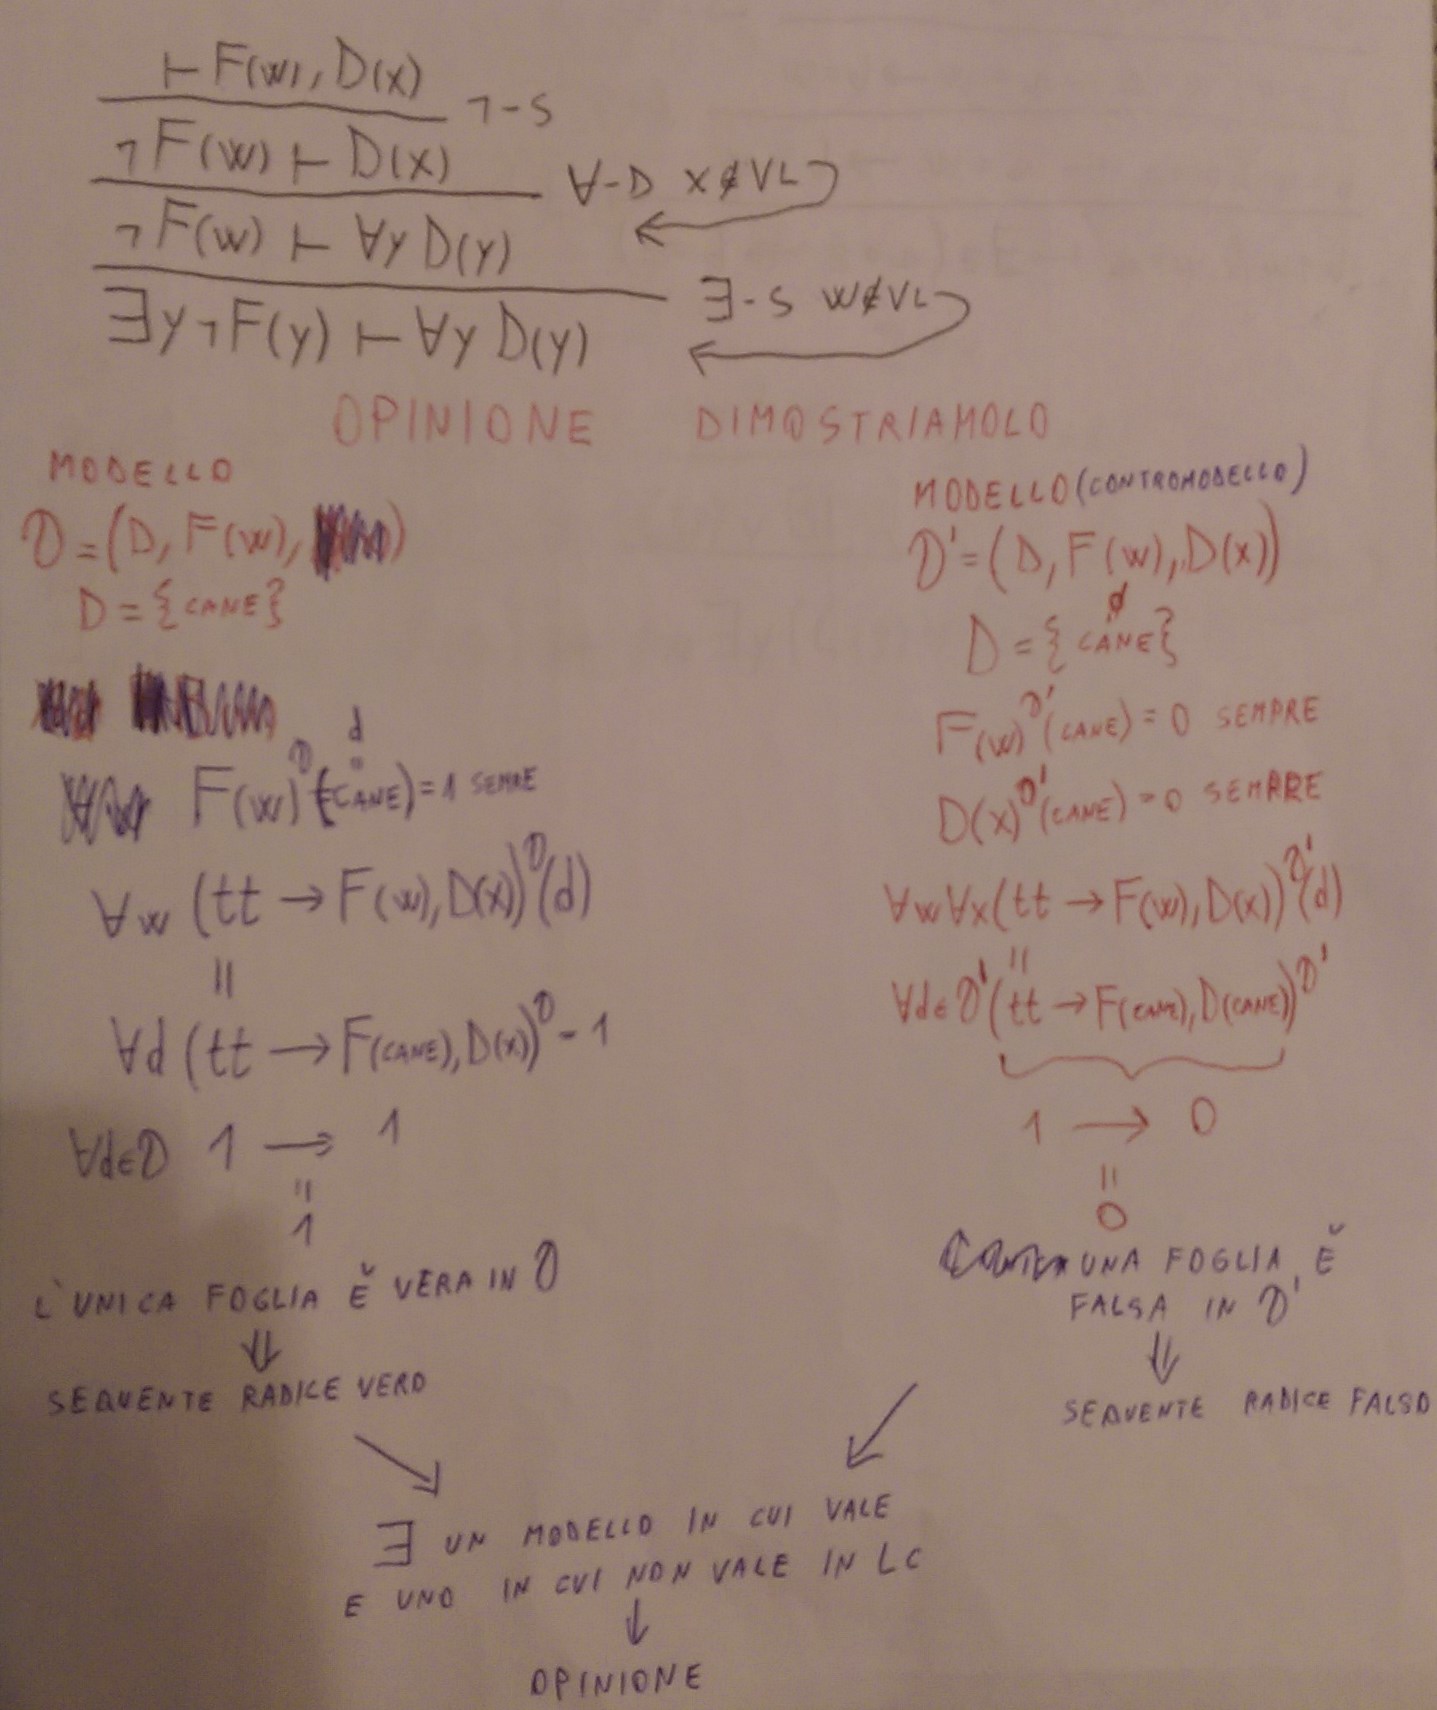 ⊢ F(w), D(x)
¬-S
¬F(w) ⊢ D(x)
∀-D x∉VL
¬F(w) ⊢ ∀y D(y)
∃-S w∉VL
∃y¬F(y) ⊢ ∀y D(y)
OPINIONE DIMOSTRIAMOLO
MODELLO
D = (D, F(w), )
D = {CANE}
d
F(w)^D (CANE) = 1 SEMPRE
∀w (tt → F(w), D(x))^D (d)
=
∀d (tt → F(CANE), D(x))^D - 1
∀d∈D 1 → 1
=
1
L'UNICA FOGLIA È VERA IN D
⇓
SEQUENTE RADICE VERO
MODELLO (CONTROMODELLO)
D' = (D, F(w), D(x))
D = {CANE}
F(w)^D' (CANE) = 0 SEMPRE
D(x)^D' (CANE) = 0 SEMPRE
∀w∀x (tt → F(w), D(x))^D' (d)
=
∀d∈D' (tt → F(CANE), D(CANE))^D'
1 → 0
=
0
UNA FOGLIA È
FALSA IN D'
⇓
SEQUENTE RADICE FALSO
∃ UN MODELLO IN CUI VALE
E UNO IN CUI NON VALE IN LC
↓
OPINIONE